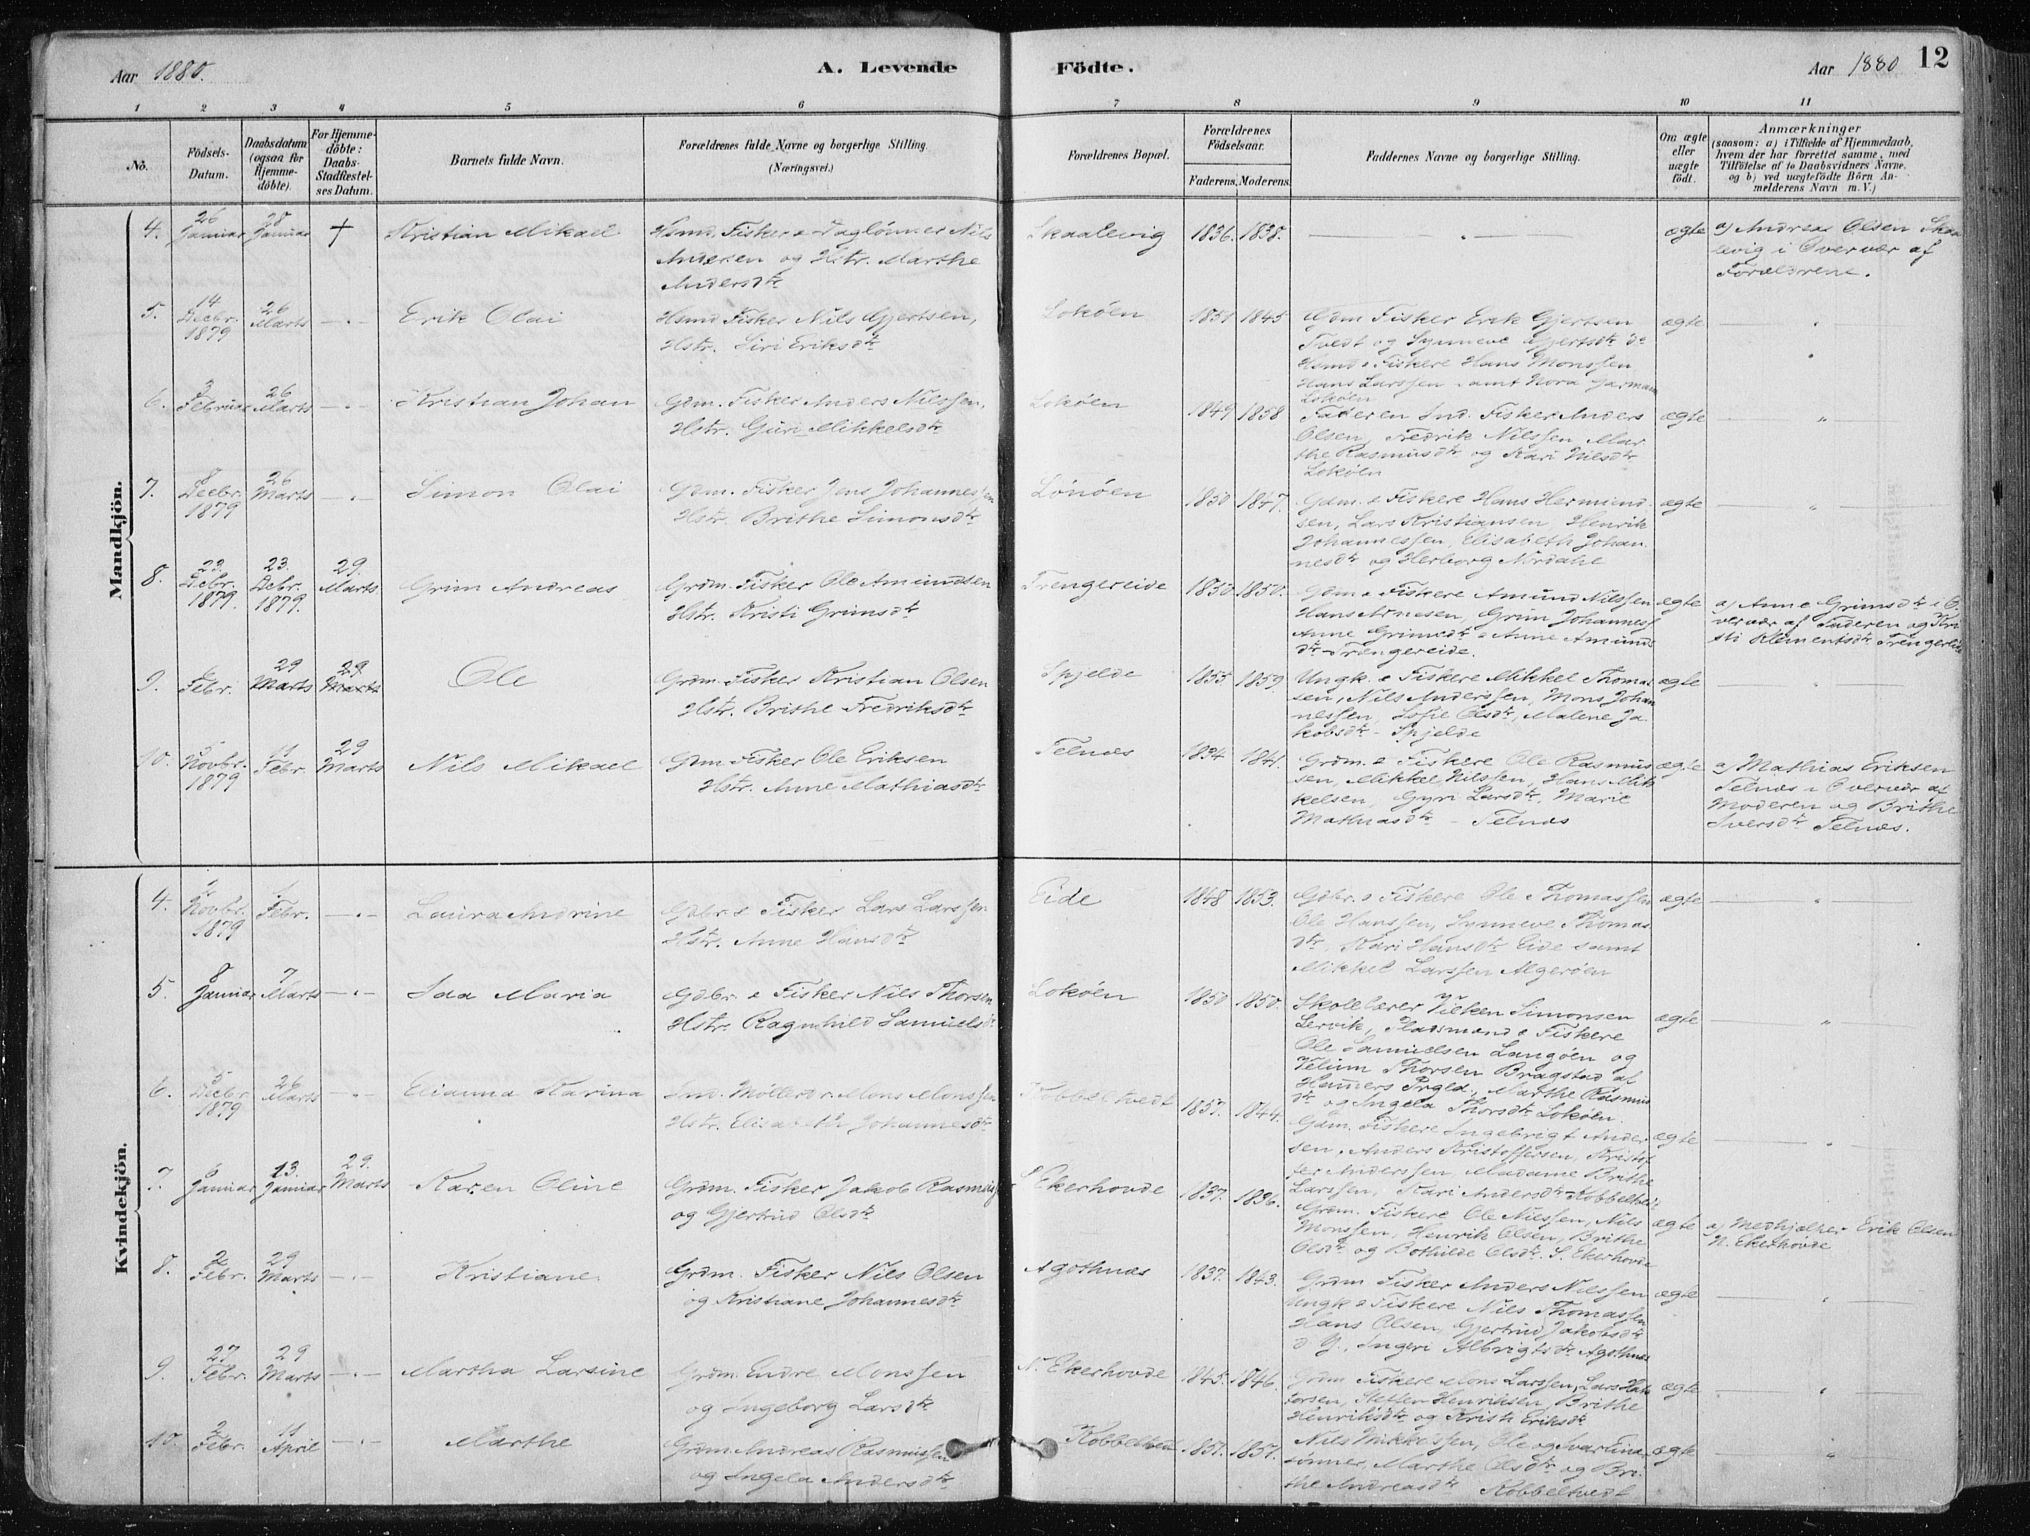 Aar 1880.
A. Levende
Födte.
Aar 1880
12
1 2 3 4 5 6 7 8 9 10 11
No.
Födsels-
Datum.
Daabsdatum
(ogsaa for
Hjemme-
döbte).
For Hjemme-
döbte:
Daabs-
Stadfæstel-
ses Datum.
Barnets fulde Navn.
Forældrenes fulde Navne og borgerlige Stilling
(Næringsvei.)
Forældrenes Bopæl.
Forældrenes
Födselsaar.
Faderens. Moderens.
Faddernes Navne og borgerlige Stilling.
Om ægte
eller
uægte
födt.
Anmærkninger
(saasom: a) i Tilfælde af Hjemmedaab,
hvem der har forrettet samme, med
Tilföielse af to Daabsvidners Navne,
og b) ved uægtefödte Börn An-
melderens Navn m. V.)
Mandkjön.
4. 26 Januar 28 Januar † Kristian Mikael
Hsmd. Fisker & Daglönner Nils
Andersen og Hstr. Marthe
Andersdtr
Skaalevig 1836. 1838. ægte
a) Andreas Olsen Skaa
levig i Overvær af
Forældrene.
5. 14 Decbr. 1879 26 Marts Erik Olai
Hsmd Fisker Nils Gjertsen,
Hstr. Siri Eriksdtr
Lokøen 1851 1845
Gdm Fisker Erik Gjertsen
Tvedt og Synneve Gjertsdtr
Hsmd & Fiskere Hans Monssen
Hans Larssen samt Nora Garmann
Lokøen
ægte
6. 3 Februar 26 Marts Kristian Johan
Gdm. Fisker Anders Nilssen,
Hstr. Guri Mikkelsdtr
Lokøen 1849 1858
Faderen Ind. Fisker Anders
Olsen, Fredrik Nilssen Mar
the Rasmusdtr og Kari Nilsdtr
Lokøen
ægte
7. 8 Decbr. 1879 26 Marts Simon Olai
Gdm. Fisker Jens Johannessen
Hstr. Brithe Simonsdtr
Lönöen 1850 1847.
Gdm. & Fiskere Hans Hermund
sen, Lars Kristiansen, Henrik
Johannessen, Elisabeth Johan
nesdtr og Herborg Nordahl
ægte
8. 23. Decbr. 1879. 23. Decbr. 1879. 29. Marts Grim Andreas
Grdm. Fisker Ole Amundsen
Hstr. Kristi Grimsdtr
Trengereide 1850 1850.
Gdm & Fiskere Amund Nilssen
Hans Arnesen, Grim Johanness
Anne Grimsdtr & Anne Amunds
dtr Trengereide.
ægte
a) Anne Grimsdtr i O
vervær af Faderen og Kri
sti Klementsdtr Trengereide
9. 6 Febr. 29 Marts 29 Marts Ole
Grdm. Fisker Kristian Olsen
Hstr. Brithe Fredriksdtr
Spjelde 1855 1859
Ungk. & Fiskere Mikkel Thomas
sen, Nils Anderssen, Mons Johan
nessen, Sofie Olsdtr, Malene Ja
kobsdtr - Spjelde
ægte
10. 5 Novbr. 1879 11 Febr. 29 Marts Nils Mikael
Gdm Fisker Ole Eriksen
Hstr. Anne Mathiasdtr
Telnæs 1834 1841.
Grdm. & Fiskere Ole Rasmus
sen, Mikkel Nilssen, Hans Mik
kelsen, Gyri Larsdtr, Marie
Mathiasdtr - Telnæs
ægte
a) Mathias Eriksen
Telnæs i Overvær af
Moderen og Brithe
Iversdtr Telnæs.
Kvindekjön.
4. 1. Novbr. 1879 1 Febr. Laura Andrine
Gdbr. & Fisker Lars Larssen
Hstr. Anne Hansdtr
Eide 1848 1853.
Gdbr. & Fiskere Ole Thomassen
Ole Hanssen, Synneve Thomas
dtr, Kari Hansdtr Eide samt
Mikkel Larssen Algeröen
ægte
5. 8 Januar 7 Marts Ida Maria
Gdbr. & Fisker Nils Thorsen
Hstr. Ragnhild Samuelsdtr
Lokøen 1850 1850.
Skollærer Vilken Simonsen
Lervik, Pladsmænd & Fiskere
Ole Samuelsen Langöen og
Velum Thorsen Bragstad af
Hammers Prgld., Marthe Rasmus
dtr og Ingela Thorsdtr Lokøen.
ægte
6. 5 Decbr. 1879 26 Marts Elianna Karina
Ind. Möllerdr. Mons Monssen
Hstr. Elisabeth Johannesdtr
Kobbeltvedt 1857. 1844.
Gdm. Fiskere Ingebrigt Ander
sen, Anders Kristoffersen, Kristof
fer Anderssen, Madame Brithe
Larssen, Kari Andersdtr Kobbeltvedt
ægte
7. 6 Januar 13. Januar 29. Marts Karen Oline
Grdm. Fisker Jakob Rasmuss
og Gjertrud Olsdtr
S. Ekerhovde 1837. 1836.
Grdm. Fiskere Ole Nilssen, Nils
Monssen, Henrik Olsen, Brithe
Olsdtr og Bothilde Olsdtr. S. Ekerhovde
ægte
a) Medhjælper Erik Olsen
N. Ekerhovde
8. 2 Febr. 29 Marts Kristiane
Grdm. Fisker Nils Olsen
og Kristiane Johannesdtr
Agothnæs 1837. 1843.
Grdm Fisker Anders Nilssen
Ungk & Fiskere Nils Thomassen
Hans Olsen, Gjertrud Jakobsdtr
d. Y., Ingeri Albrigtsdtr Agothnæs
ægte
9. 27 Febr. 29 Marts Martha Larsine
Grdm. Endre Monssen
og Ingeborg Larsdtr
N. Ekerhovde 1845. 1846.
Grdm Fiskere Mons Larssen, Lars Hal
Steffen Henriksen, Brithe
Henriksdtr og Eriksdtr
ægte
10. 2 Febr. 11 April Marthe
Grdm Andreas Rasmussen
og Ingela Andersdtr
Kobbeltvedt 1851. 1851.
Nils Mikkelssen, Ole og
sönner, Marthe Olsdtr og Bri-
the Andreasdtr Kobbeltvedt
ægte